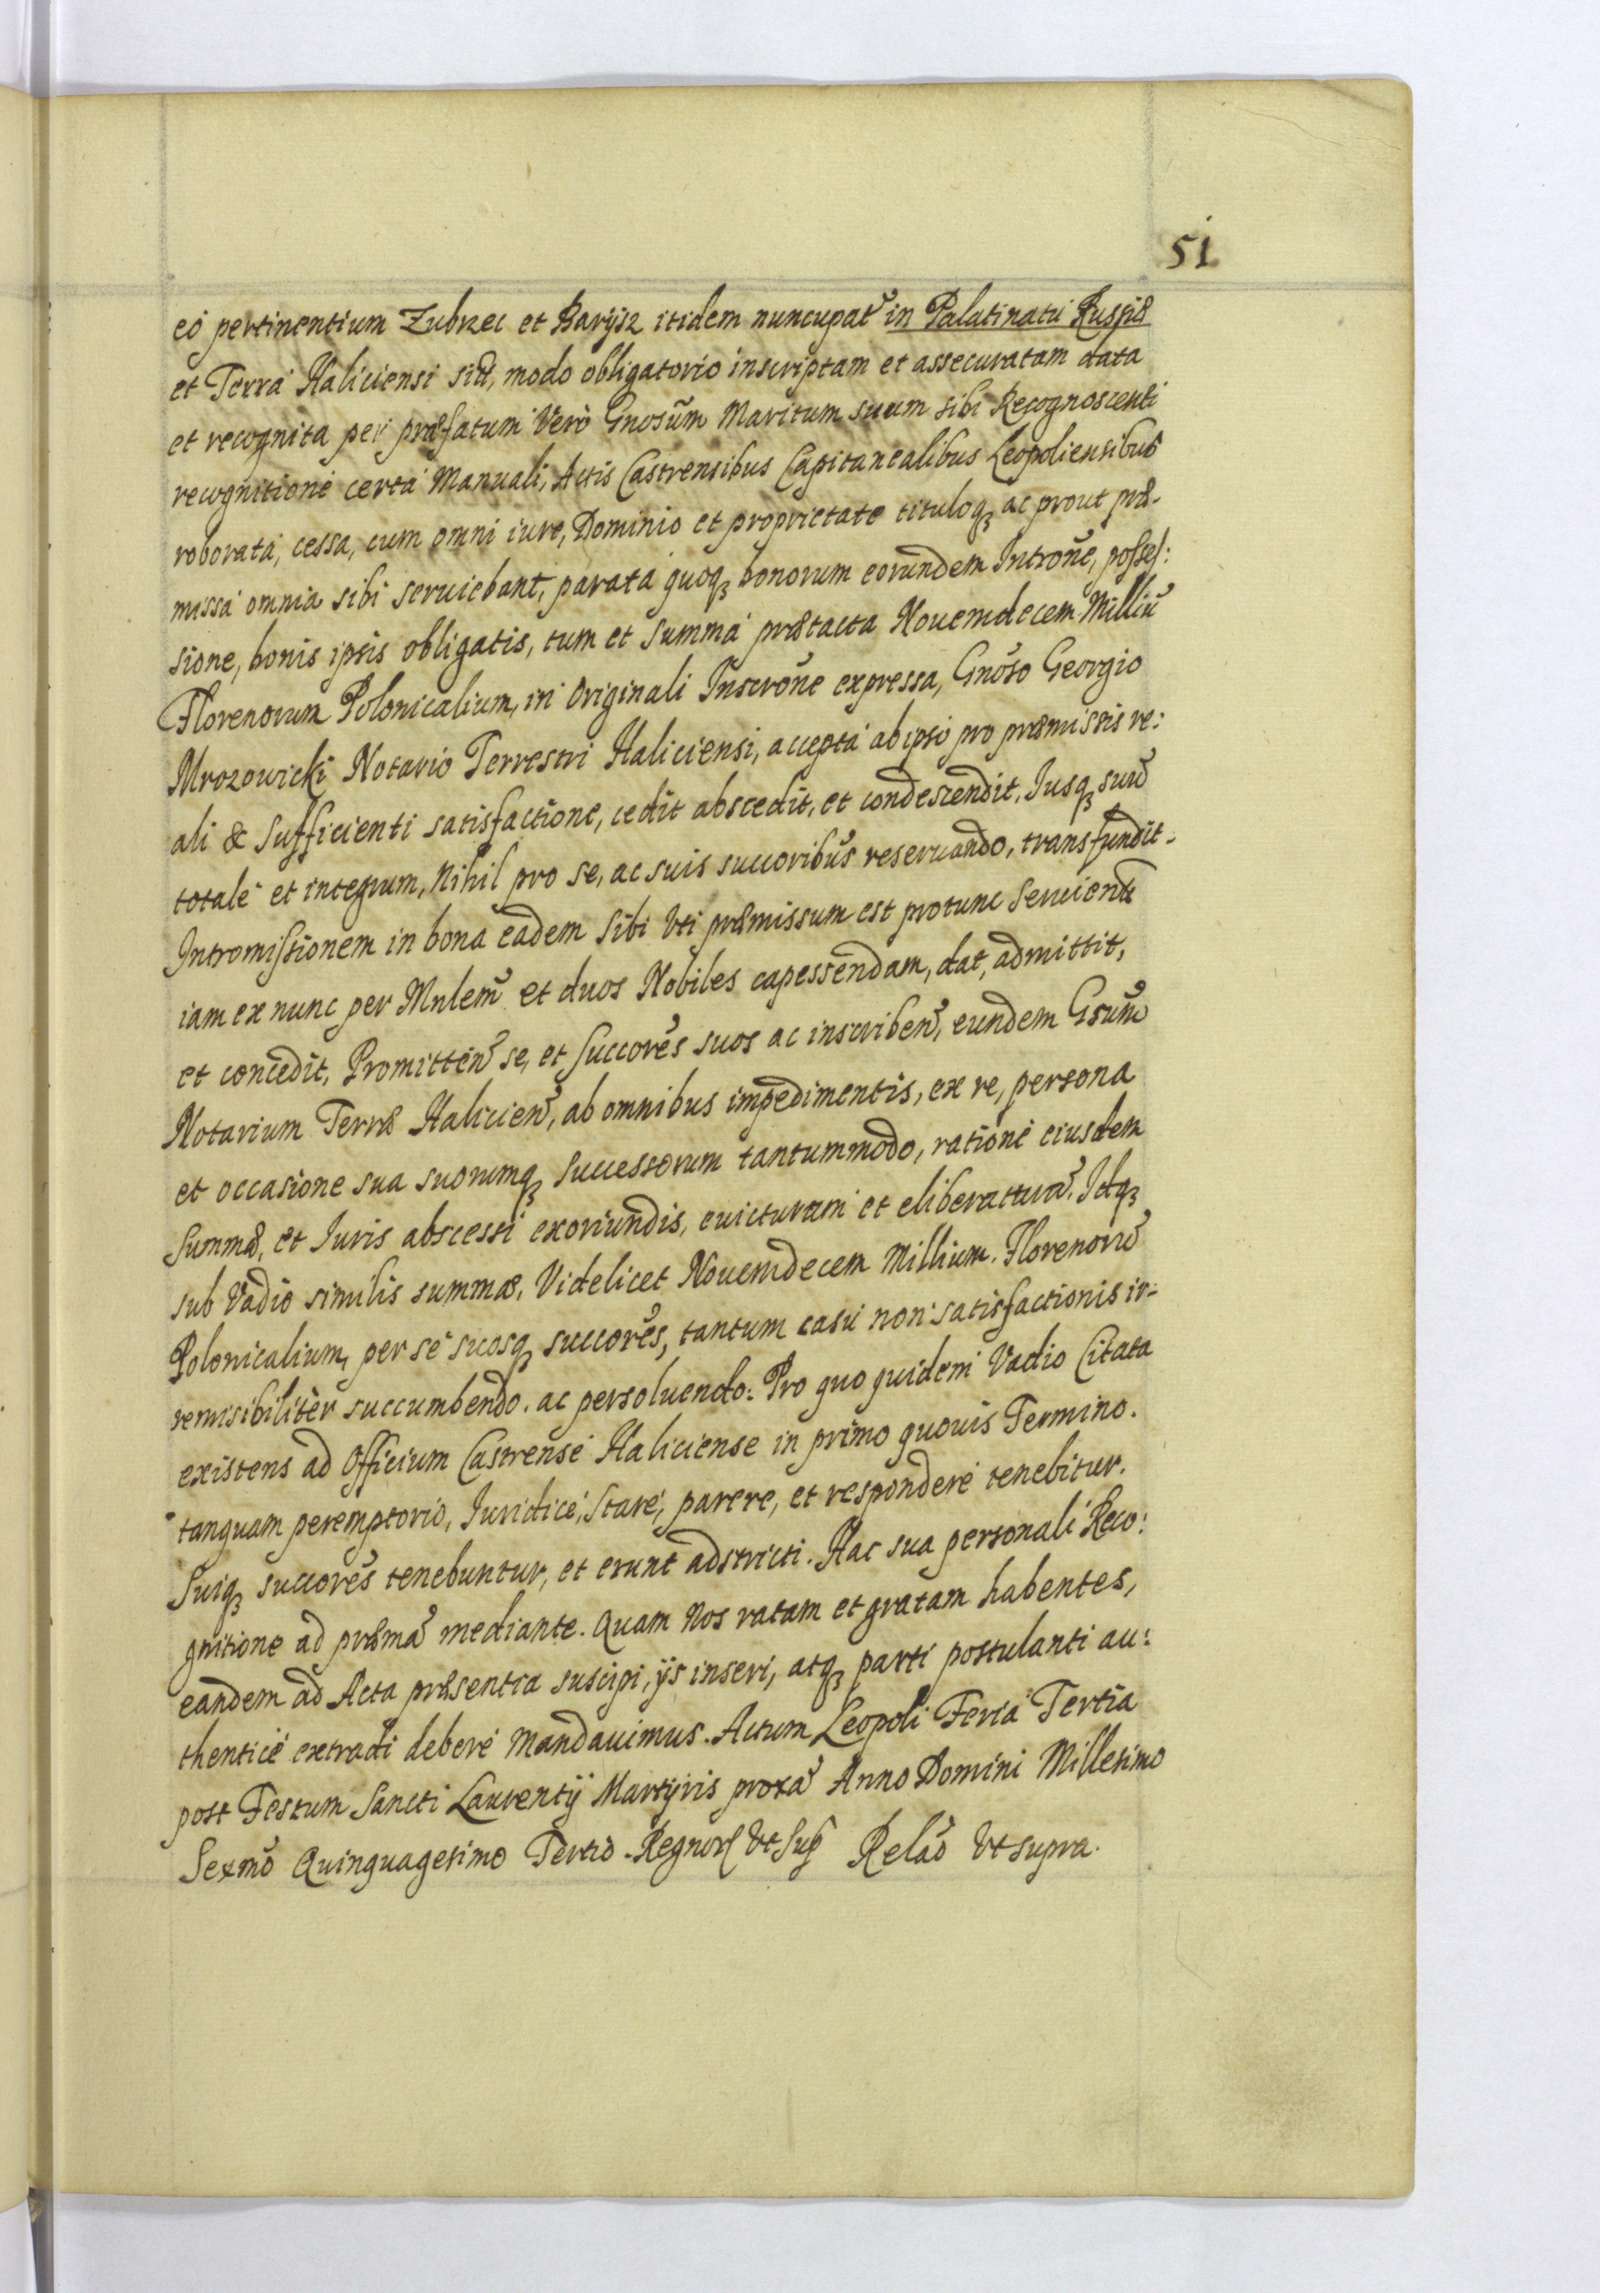 51
eó pertinentium Zubrzec et Baryjsz itidem nuncupat̃ in Palatinatu Russiæ
et Terrá Haliciensi sit̃, modo obligatorio inscriptam et assecuratam data
et recognita per præfatum Verò Gnosũm Maritum suum sibi Recognoscenti
recognitioné certá Manuali, Actis Castrensibus Capitanealibus Leopoliensibus
roboratá, cessa, cum omni iure, Dominio et proprietate tituloqꝫ ac prout præ-
missá omnia sibi seruiebant, paratá quoqꝫ bonorum eorundem Introñe, posses:
sione, bonis ipsis obligatis, tum et summá prætacta Nouemdecem Milliũ
Florenorum Polonicalium, in Originali Inscroñe expressa, Gnõso Georgio
Mrozowicki Notario Terrestri Haliciensi, acceptá ab ipso pro præmissis re:
ali & sufficienti satisfactione, cedit abscedit, et condescendit, Iusqꝫ suũ
totale et integrum, Nihil pro se, ac suis succoribũs reseruando, transfundit.
Intromissionem in bona eadem sibi Vti præmissum est protunc Seruient̃
iam ex nunc per Mnlem̃ et duos Nobiles capessendam, dat, admittit,
et concedit, Promitteñ se, et succorẽs suos ac inscribeñ, eundem Gsũm
Notarium Terræ Halicieñ, ab omnibus impedimentis, ex re, persona
et occasione sua suorumqꝫ Successorum tantummodo, rationé eiusdem
Summæ, et Iuris abscessi exoriundis, euicturam et eliberaturã. Idqꝫ
sub Vadio similis summæ, Videlicet Nouemdecem Millium Florenorũ
Polonicalium, per sé suosqꝫ succorẽs, tantum casu non satisfactionis ir-
remisibilitèr succumbendo. ac persoluendo. Pro quo quidem Vadio Citata
existens ad Officium Castrensé Haliciense in primo quouis Termino.
tanquam peremptorio, Iuridicé, Staré, parere, et responderé tenebitur.
Suiqꝫ succorẽs tenebuntur, et erunt adstricti. Hac sua personali Reco:
gnitione ad præmã mediante. Quam Nos ratam et gratam habentes,
eandem ad Acta præsentia suscipi, ijs inseri, atqꝫ parti postulanti au:
thenticé extradi deberé Mandauimus. Actum Leopoli Feriá Tertia
post Festum Sancti Laurentij Martyris proxã Anno Domini Millesimo
Sexmõ Quinquagesimo Tertio. Regnorꝫ Vt Supꝫ Relaõ Vt supra.